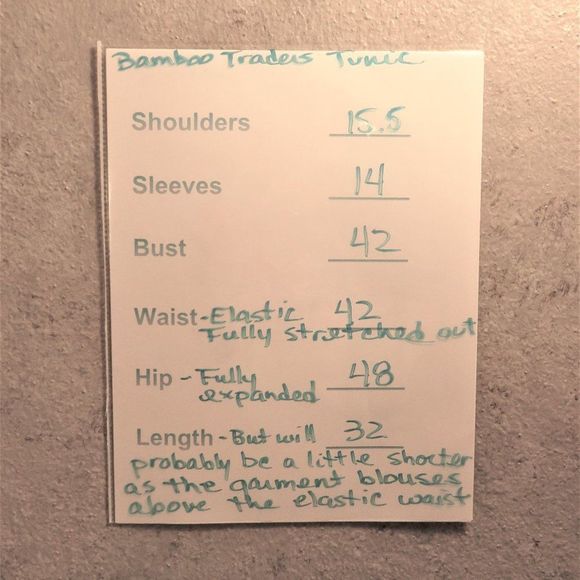 Bamboo Traders Tunic
Shoulders 15.5
Sleeves 14
Bust 42
Waist - Elastic 42
Fully stretched out
Hip - Fully 48
expanded
Length - But will 32
probably be a little shorter
as the garment blouses
above the elastic waist